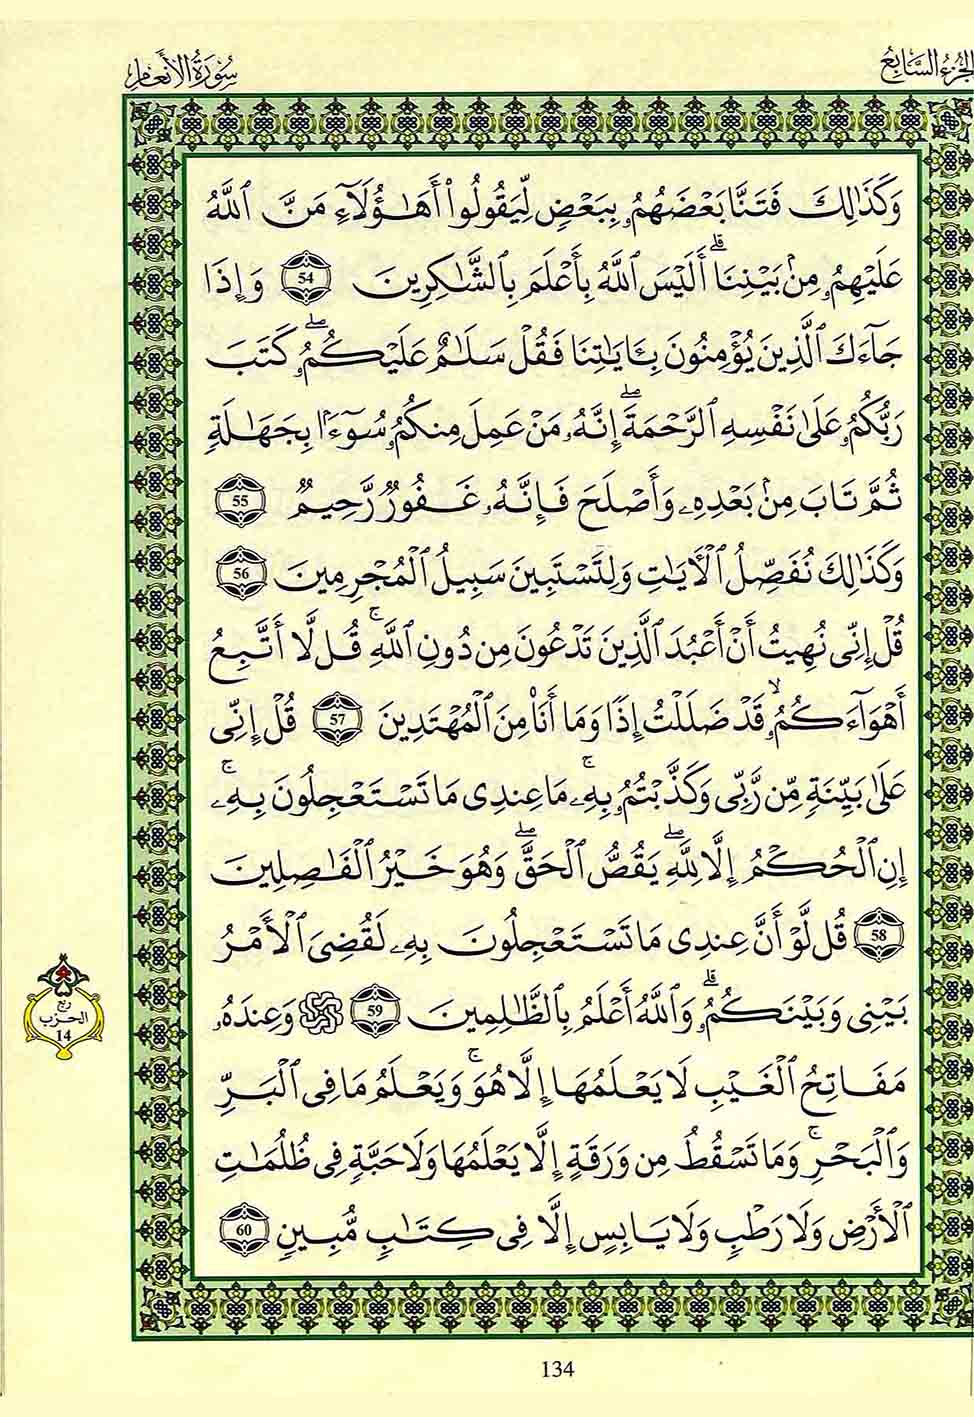 الجزء السابع
سورة الأنعام
وَكَذَٰلِكَ فَتَنَّا بَعْضَهُمُۥ بِبَعْضٍ لِّيَقُولُوٓا۟ أَهَـٰٓؤُلَآءِ مَنَّ ٱللَّهُ
عَلَيْهِمُۥ مِنۢ بَيْنِنَآ ۗ أَلَيْسَ ٱللَّهُ بِأَعْلَمَ بِٱلشَّـٰكِرِينَ 54 وَإِذَا
جَآءَكَ ٱلَّذِينَ يُؤْمِنُونَ بِـَٔايَـٰتِنَا فَقُلْ سَلَـٰمٌ عَلَيْكُمُۥ ۖ كَتَبَ
رَبُّكُمُۥ عَلَىٰ نَفْسِهِ ٱلرَّحْمَةَ ۖ إِنَّهُۥ مَنْ عَمِلَ مِنكُمُۥ سُوٓءًۢا بِجَهَـٰلَةٍ
ثُمَّ تَابَ مِنۢ بَعْدِهِۦ وَأَصْلَحَ فَإِنَّهُۥ غَفُورٌ رَّحِيمٌ 55
وَكَذَٰلِكَ نُفَصِّلُ ٱلْأَيَـٰتِ وَلِتَسْتَبِينَ سَبِيلُ ٱلْمُجْرِمِينَ 56
قُلْ إِنِّى نُهِيتُ أَنْ أَعْبُدَ ٱلَّذِينَ تَدْعُونَ مِن دُونِ ٱللَّهِ ۚ قُل لَّآ أَتَّبِعُ
أَهْوَآءَكُمُۥ ۙ قَدْ ضَلَلْتُ إِذًا وَمَآ أَنَا۠ مِنَ ٱلْمُهْتَدِينَ 57 قُلْ إِنِّى
عَلَىٰ بَيِّنَةٍ مِّن رَّبِّى وَكَذَّبْتُمُۥ بِهِۦ ۚ مَا عِندِى مَا تَسْتَعْجِلُونَ بِهِۦٓ ۚ
إِنِ ٱلْحُكْمُ إِلَّا لِلَّهِ ۖ يَقُصُّ ٱلْحَقَّ ۖ وَهُوَ خَيْرُ ٱلْفَـٰصِلِينَ
58 قُل لَّوْ أَنَّ عِندِى مَا تَسْتَعْجِلُونَ بِهِۦ لَقُضِىَ ٱلْأَمْرُ
بَيْنِى وَبَيْنَكُمُۥ ۗ وَٱللَّهُ أَعْلَمُ بِٱلظَّـٰلِمِينَ 59 وَعِندَهُۥ
مَفَاتِحُ ٱلْغَيْبِ لَا يَعْلَمُهَآ إِلَّا هُوَ ۚ وَيَعْلَمُ مَا فِى ٱلْبَرِّ
وَٱلْبَحْرِ ۚ وَمَا تَسْقُطُ مِن وَرَقَةٍ إِلَّا يَعْلَمُهَا وَلَا حَبَّةٍ فِى ظُلُمَـٰتِ
ٱلْأَرْضِ وَلَا رَطْبٍ وَلَا يَابِسٍ إِلَّا فِى كِتَـٰبٍ مُّبِينٍ 60
ربع
الحزب
14
134